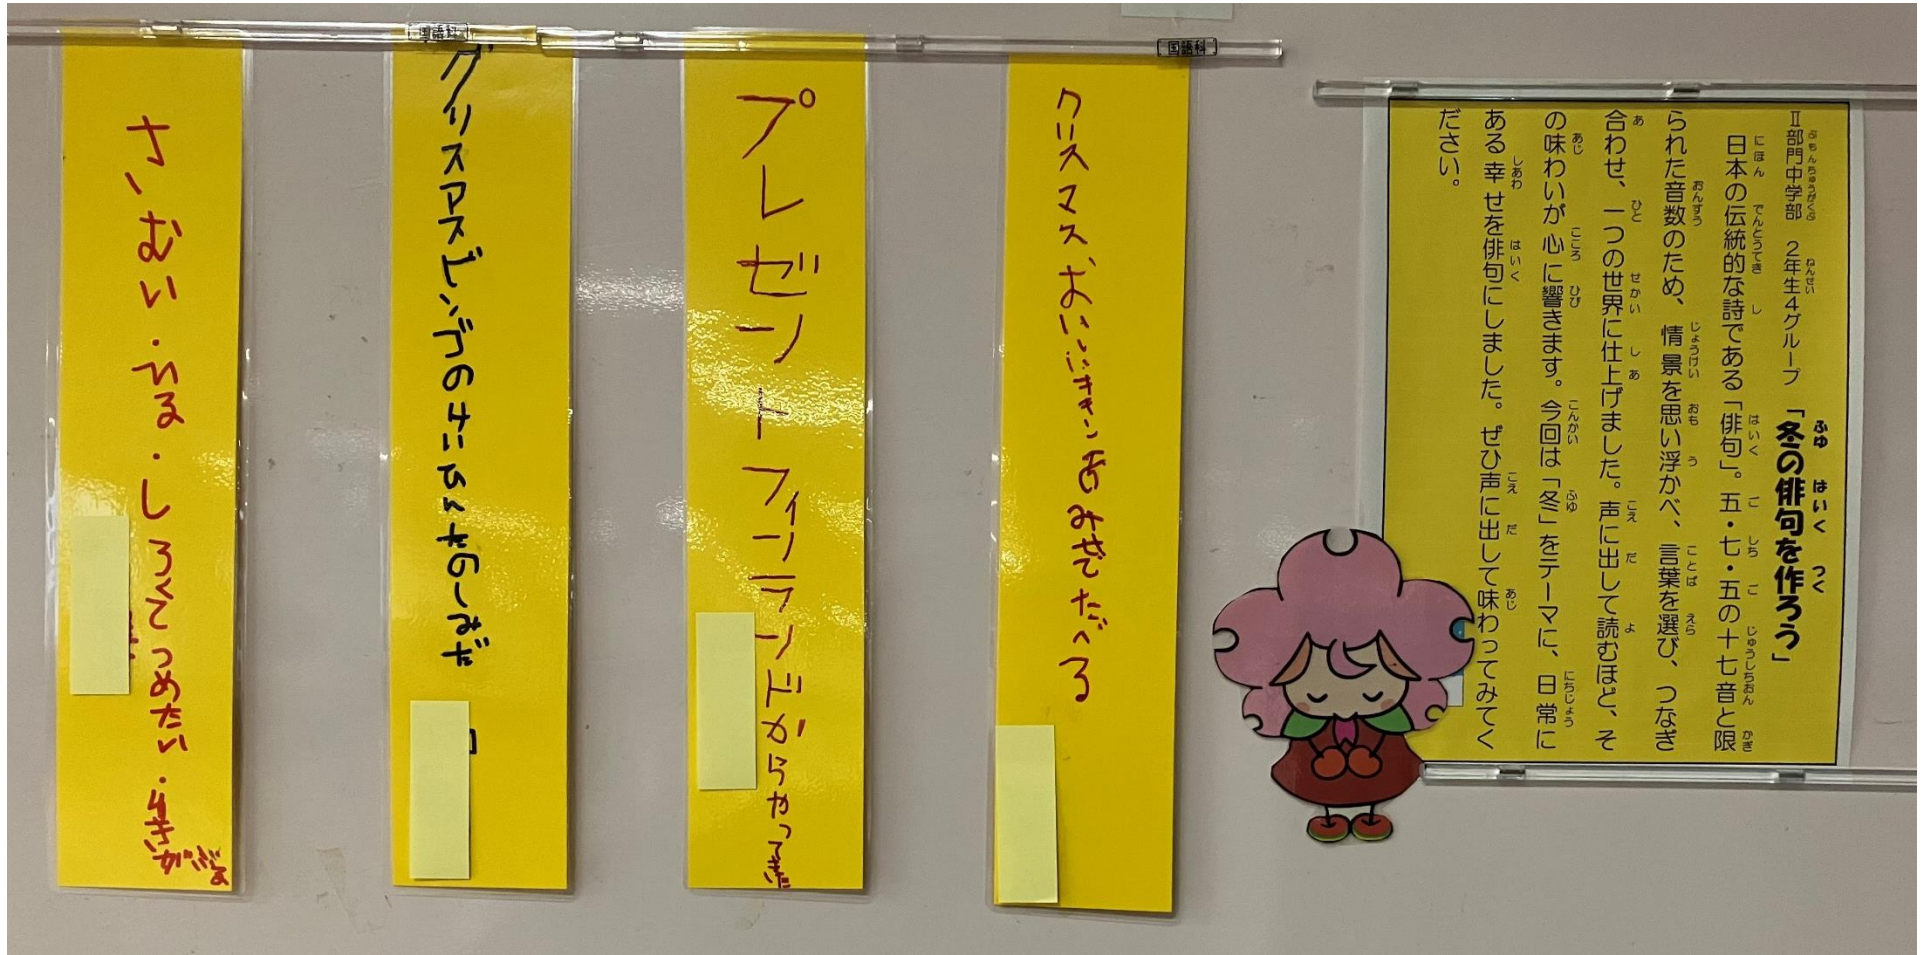 Ⅱ部門中学部 2年生4グループ 「冬の俳句を作ろう」
日本の伝統的な詩である「俳句」。五・七・五の十七音と限
られた音数のため、情景を思い浮かべ、言葉を選び、つなぎ
合わせ、一つの世界に仕上げました。声に出して読むほど、そ
の味わいが心に響きます。今回は「冬」をテーマに、日常に
ある幸せを俳句にしました。ぜひ声に出して味わってみてく
ださい。
国語科
クリスマス、おいしいチキン
みせでたべる
プレゼントフィンランドからやってきた
国語科
クリスマスビンゴのけいひんたのしみだ
さむい・よる・しろくてつめたい・ゆきがふる